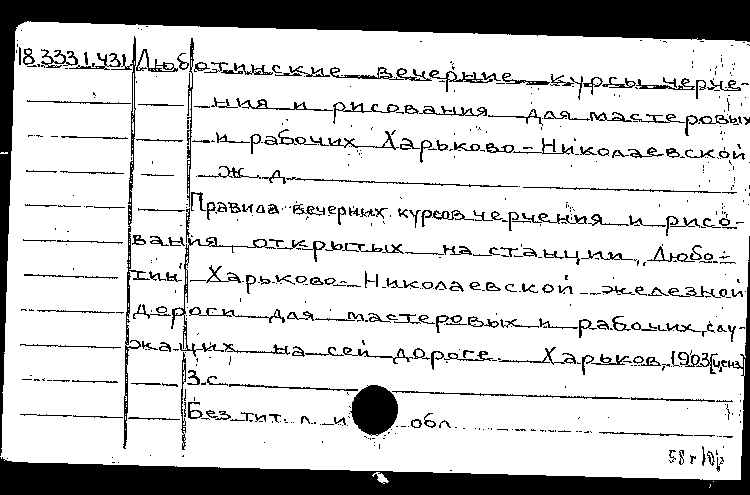 18.333.1.431 Люботинские вечерние курсы черче-
ния и рисования для мастеровых
и рабочих Харьково-Николаевской
ж.д.
Правила вечерних курсов черчения и рисо-
вания, открытых на станции „Любо-
тин" Харьково-Николаевской железной
дороги для мастеровых и рабочих, слу-
жащих на сей дороге. Харьков, 1903 [ценз]
3 с.
Без тит. л. и обл.